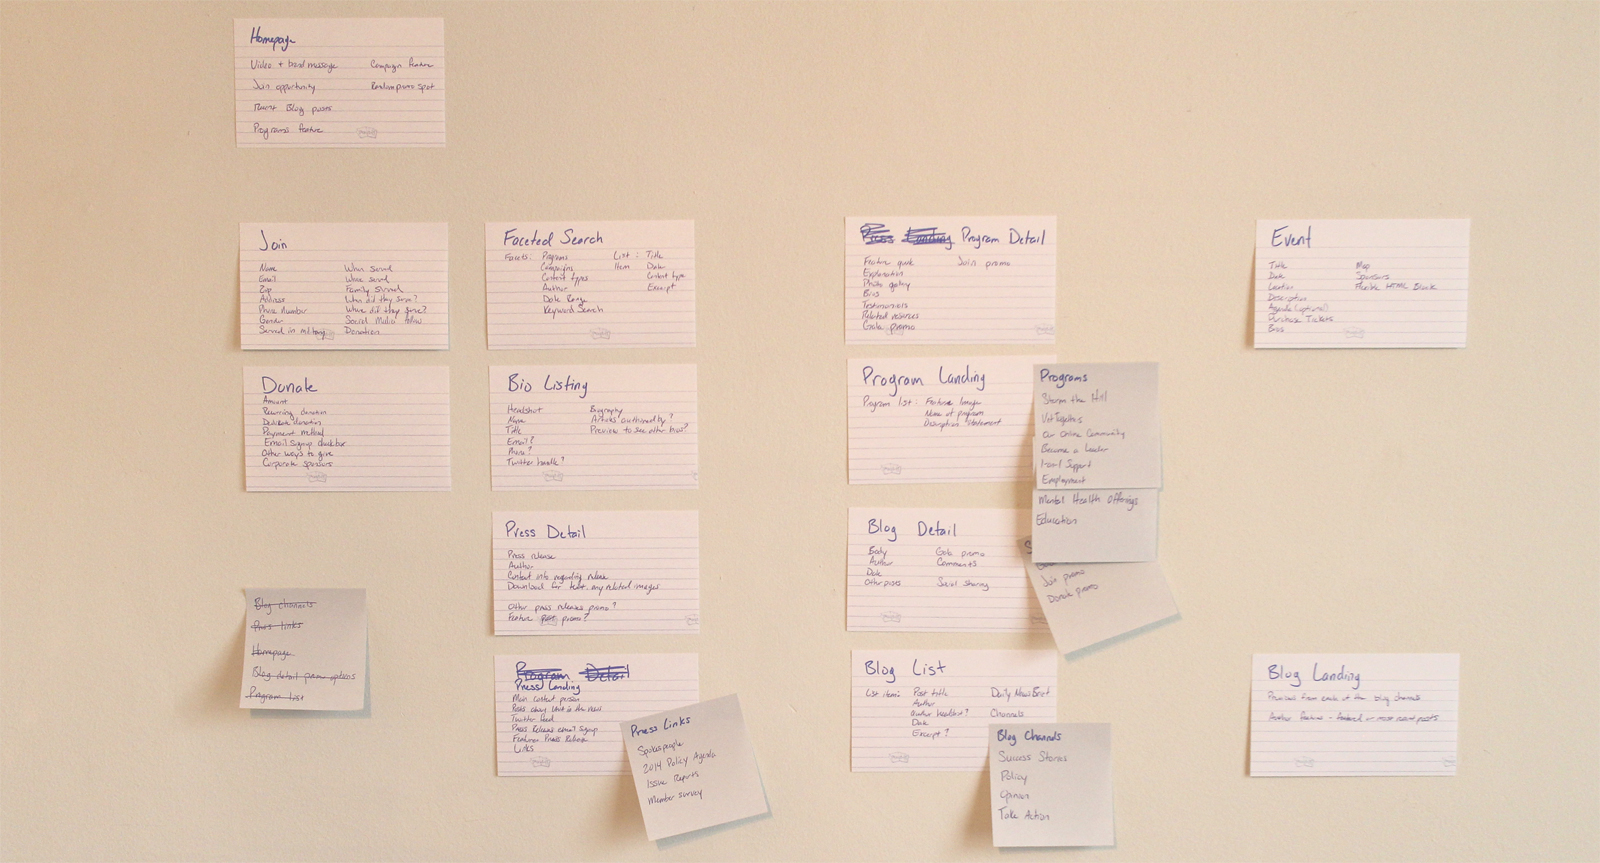 Homepage
Video + brand message
Join opportunity
Recent Blog posts
Programs feature
Campaign feature
Random promo spot
Join
Name
Email
Zip
Address
Phone Number
Gender
Served in military
When served
Where served
Family Served
When did they serve?
Where did they serve?
Social Media follow
Donation
Faceted Search
Facets: Programs
Campaigns
Content types
Author
Date Range
Keyword Search
List Item: Title
Date
Content type
Excerpt
Press Landing Program Detail
Feature quote
Explanation
Photo gallery
Bios
Testimonials
Related resources
promo
Join promo
Event
Title
Date
Location
Description
Agenda (optional)
Purchase Tickets
Bios
Map
Sponsors
Flexible HTML Block
Donate
Amount
Recurring donation
Dedicate donation
Payment method
Email signup checkbox
Other ways to give
Corporate sponsors
Bio Listing
Headshot
Name
Title
Email?
Phone?
Twitter handle?
Biography
Articles authored by?
Preview to see other bios?
Program Landing
Program list: Feature Image
Name of program
Description statement
Programs
Storm the Hill
VetTogethers
Our Online Community
Become a Leader
Local Support
Employment
Mental Health Offerings
Education
Press Detail
Press release
Author
Contact info regarding release
Download for text, any related images
Other press releases promo?
Feature post promo?
Blog Detail
Body
Author
Date
Other posts
promo
Comments
Social sharing
Join promo
Donate promo
Blog channels
Press links
Homepage
Blog detail promo options
Program list
Program Detail
Press Landing
Main contact person
Twitter feed
Press Release email signup
Feature Press Release
Links
Press Links
Spokespeople
2014 Policy Agenda
Issue Reports
Member survey
Blog List
List item: Post title
Author
Author headshot?
Date
Excerpt?
Daily News Brief
Channels
Blog Channels
Success Stories
Policy
Opinion
Take Action
Blog Landing
Previews from each of the blog channels
Another feature - featured or most recent posts